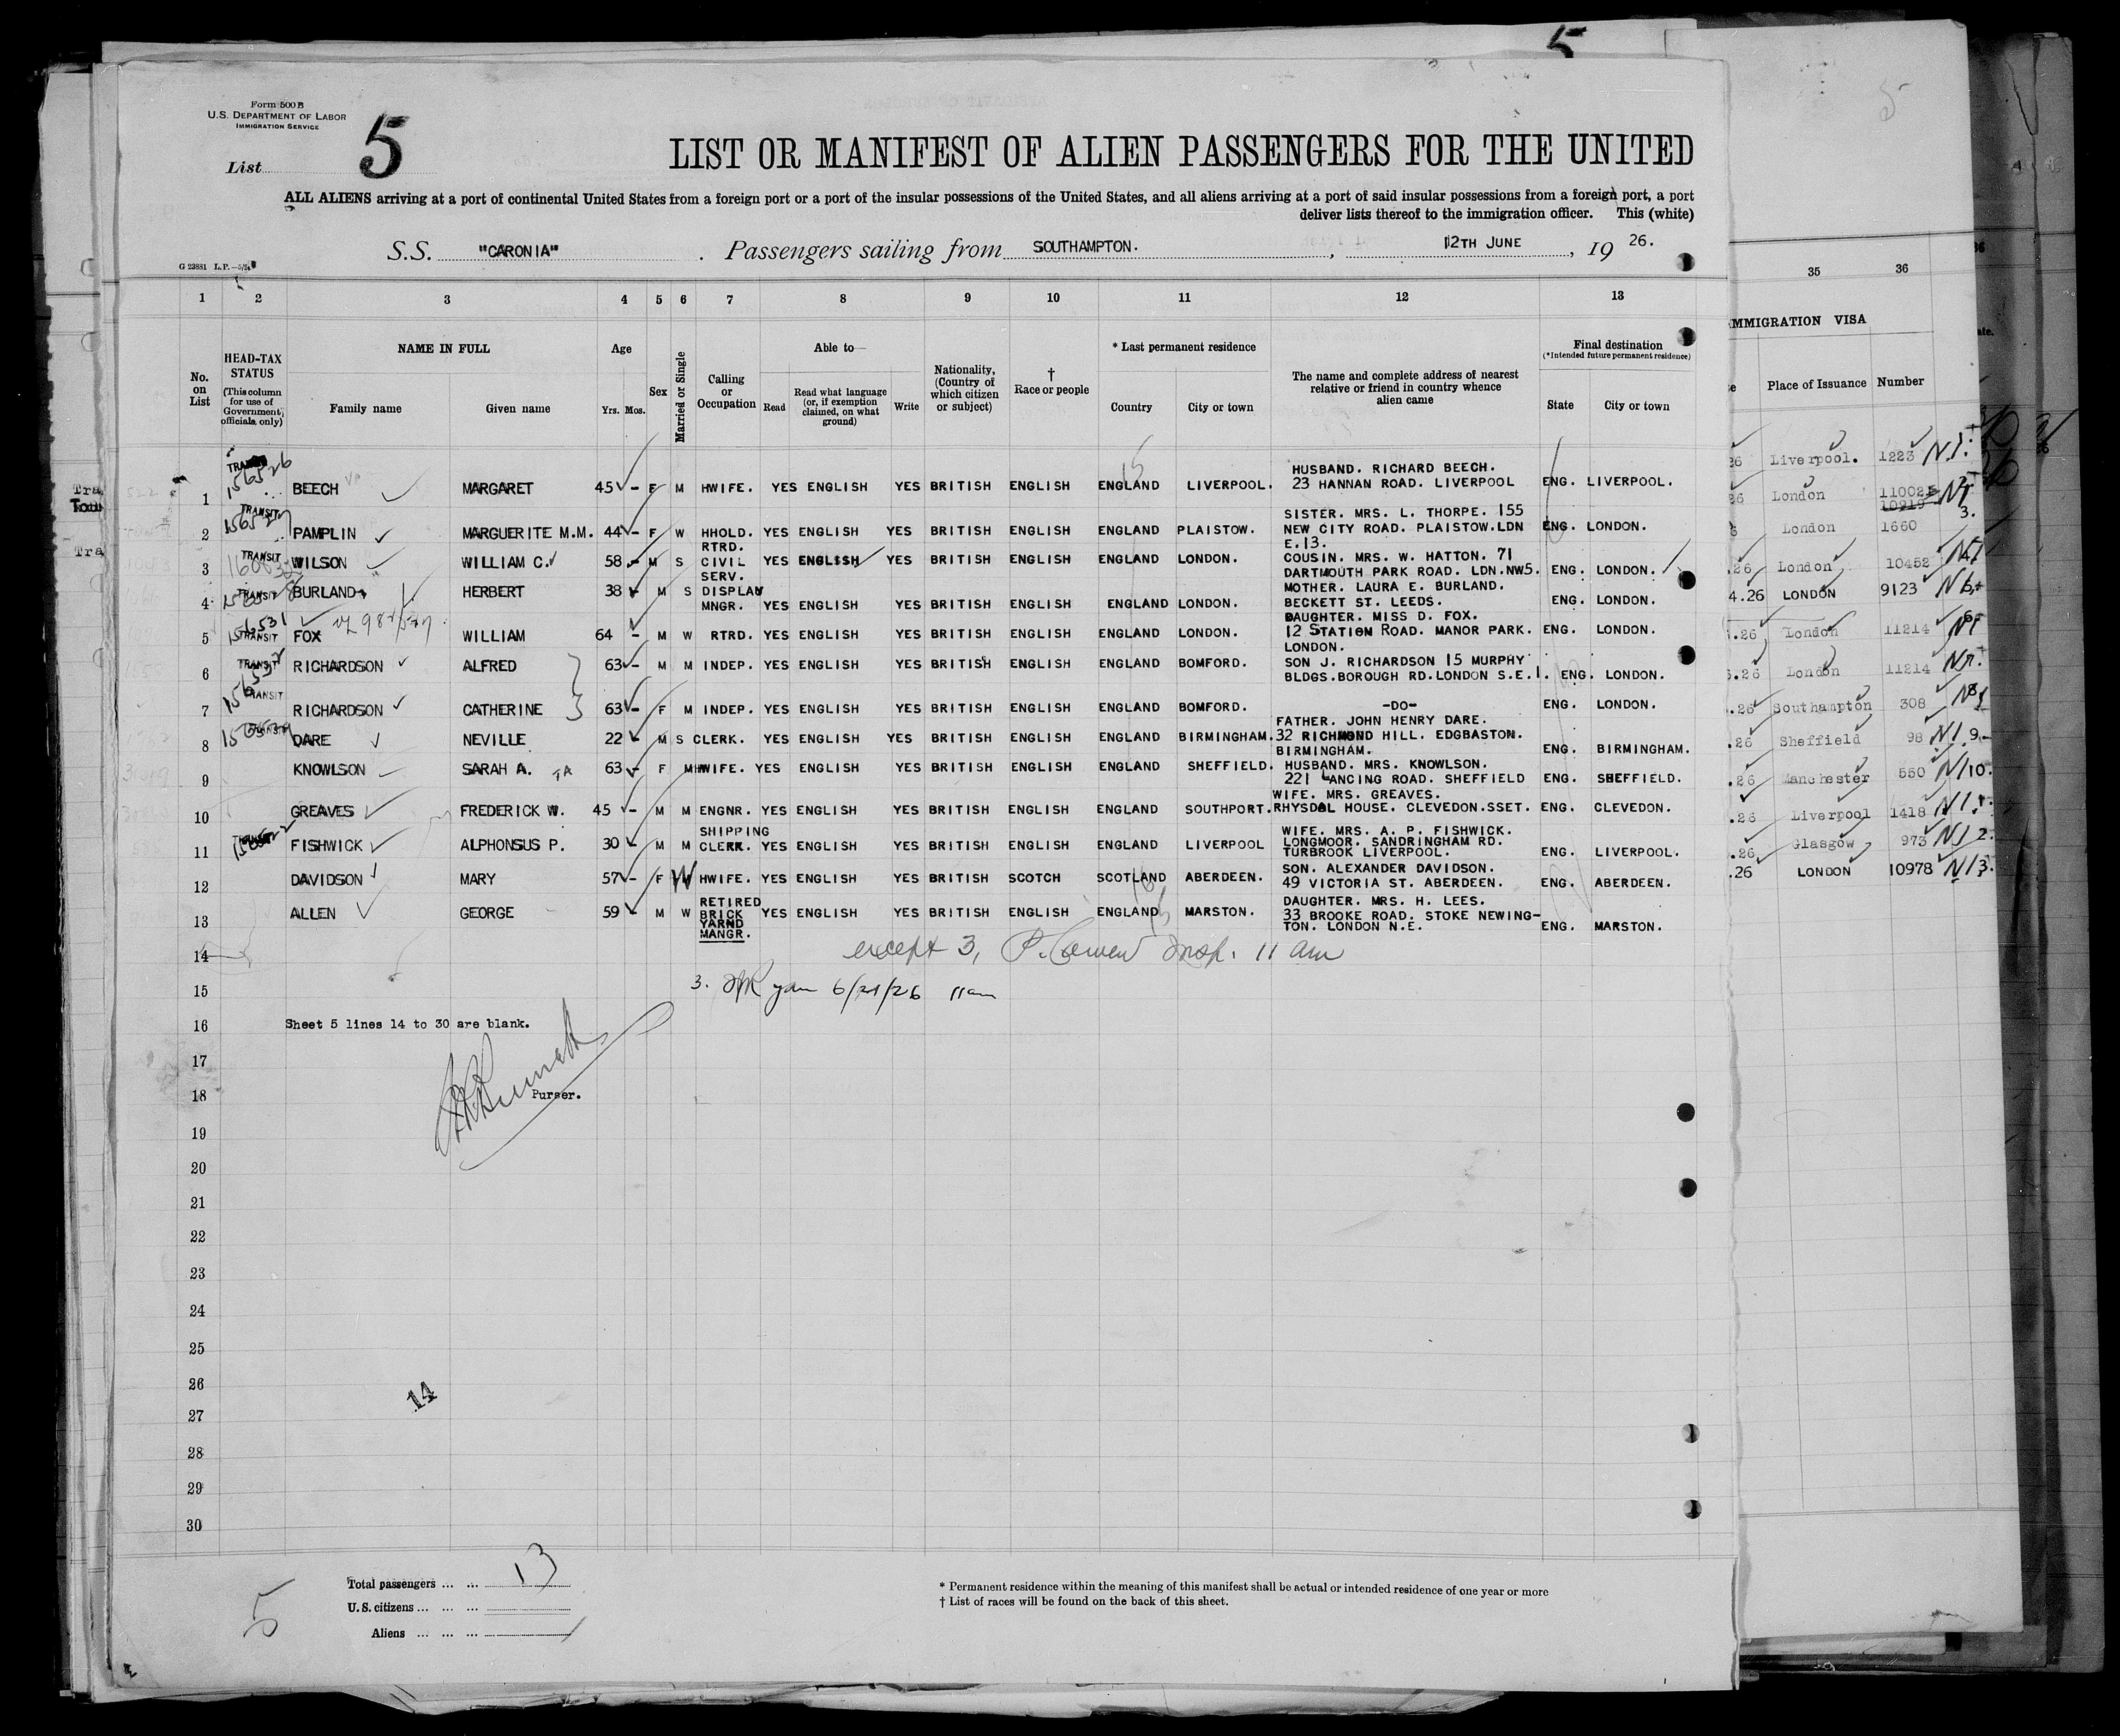 5
Form 500 B
U.S. DEPARTMENT OF LABOR
IMMIGRATION SERVICE
List 5
LIST OR MANIFEST OF ALIEN PASSENGERS FOR THE UNITED
ALL ALIENS arriving at a port of continental United States from a foreign port or a port of the insular possessions of the United States, and all aliens arriving at a port of said insular possessions from a foreign port, a port
deliver lists thereof to the immigration officer. This (white)
S.S. "CARONIA" . Passengers sailing from SOUTHAMPTON. , 12TH JUNE , 19 26.
G 23881 L.P.
1 2 3 4 5 6 7 8 9 10 11 12 13 35 36
No. on List
HEAD-TAX STATUS (This column for use of Government officials, only)
NAME IN FULL
Family name Given name
Age
Yrs. Mos.
Sex
Married or Single
Calling or Occupation
Able to—
Read
Read what language (or, if exemption claimed, on what ground)
Write
Nationality, (Country of which citizen or subject)
† Race or people
* Last permanent residence
Country City or town
The name and complete address of nearest relative or friend in country whence alien came
Final destination
(*Intended future permanent residence)
State City or town
IMMIGRATION VISA
Place of Issuance Number
HUSBAND. RICHARD BEECH.
1 BEECH MARGARET 45 - F M HWIFE. YES ENGLISH YES BRITISH ENGLISH ENGLAND LIVERPOOL. 23 HANNAN ROAD. LIVERPOOL ENG. LIVERPOOL. 26 Liverpool. 1223
SISTER. MRS. L. THORPE. 155
2 TRANSIT PAMPLIN MARGUERITE M.M. 44 - F W HHOLD. YES ENGLISH YES BRITISH ENGLISH ENGLAND PLAISTOW. NEW CITY ROAD. PLAISTOW.LDN E.13. ENG. LONDON. 26 London 11002 10919
3 TRANSIT WILSON WILLIAM C. 58 - M S RTRD. CIVIL SERV. YES ENGLISH YES BRITISH ENGLISH ENGLAND LONDON. COUSIN. MRS. W. HATTON. 71 DARTMOUTH PARK ROAD. LDN.NW5. ENG. LONDON. London 1660
4 TRANSIT BURLAND HERBERT 38 M S DISPLAY MNGR. YES ENGLISH YES BRITISH ENGLISH ENGLAND LONDON. MOTHER. LAURA E. BURLAND. BECKETT ST. LEEDS. ENG. LONDON. .26 London 10452
5 TRANSIT FOX WILLIAM 64 - M W RTRD. YES ENGLISH YES BRITISH ENGLISH ENGLAND LONDON. DAUGHTER. MISS D. FOX. 12 STATION ROAD. MANOR PARK. LONDON. ENG. LONDON. 4.26 LONDON 9123
6 TRANSIT RICHARDSON ALFRED 63 - M M INDEP. YES ENGLISH YES BRITISH ENGLISH ENGLAND BOMFORD. SON J. RICHARDSON 15 MURPHY BLDGS.BOROUGH RD.LONDON S.E.1. ENG. LONDON. .26 London 11214
7 TRANSIT RICHARDSON CATHERINE 63 - F M INDEP. YES ENGLISH YES BRITISH ENGLISH ENGLAND BOMFORD. -DO- ENG. LONDON. .26 London 11214
8 DARE NEVILLE 22 - M S CLERK. YES ENGLISH YES BRITISH ENGLISH ENGLAND BIRMINGHAM. FATHER. JOHN HENRY DARE. 32 RICHMOND HILL. EDGBASTON. BIRMINGHAM. ENG. BIRMINGHAM. .26 Southampton 308
9 KNOWLSON SARAH A. 63 - F M HWIFE. YES ENGLISH YES BRITISH ENGLISH ENGLAND SHEFFIELD. HUSBAND. MRS. KNOWLSON. 221 LANCING ROAD. SHEFFIELD ENG. SHEFFIELD. .26 Sheffield 98
10 GREAVES FREDERICK W. 45 - M M ENGNR. YES ENGLISH YES BRITISH ENGLISH ENGLAND SOUTHPORT. WIFE. MRS. GREAVES. RHYSDAL HOUSE. CLEVEDON.SSET. ENG. CLEVEDON. .26 Manchester 550
11 FISHWICK ALPHONSUS P. 30 - M M SHIPPING CLERK. YES ENGLISH YES BRITISH ENGLISH ENGLAND LIVERPOOL WIFE. MRS. A. P. FISHWICK. LONGMOOR. SANDRINGHAM RD. TURBROOK LIVERPOOL. ENG. LIVERPOOL. .26 Liverpool 1418
12 DAVIDSON MARY 57 - F W HWIFE. YES ENGLISH YES BRITISH SCOTCH SCOTLAND ABERDEEN. SON. ALEXANDER DAVIDSON. 49 VICTORIA ST. ABERDEEN. ENG. ABERDEEN. .26 Glasgow 973
13 ALLEN GEORGE 59 - M W RETIRED BRICK YARND MANGR. YES ENGLISH YES BRITISH ENGLISH ENGLAND MARSTON. DAUGHTER. MRS. H. LEES. 33 BROOKE ROAD. STOKE NEWING- TON. LONDON N.E. ENG. MARSTON. .26 LONDON 10978
14 except 3, 11 am
15 3. 6/21/26 11am
16 Sheet 5 lines 14 to 30 are blank.
17
18 Purser.
19
20
21
22
23
24
25
26 14
27
28
29
30
5
Total passengers ... ... 13
U.S. citizens ... ... ...
Aliens ... ... ...
* Permanent residence within the meaning of this manifest shall be actual or intended residence of one year or more
† List of races will be found on the back of this sheet.